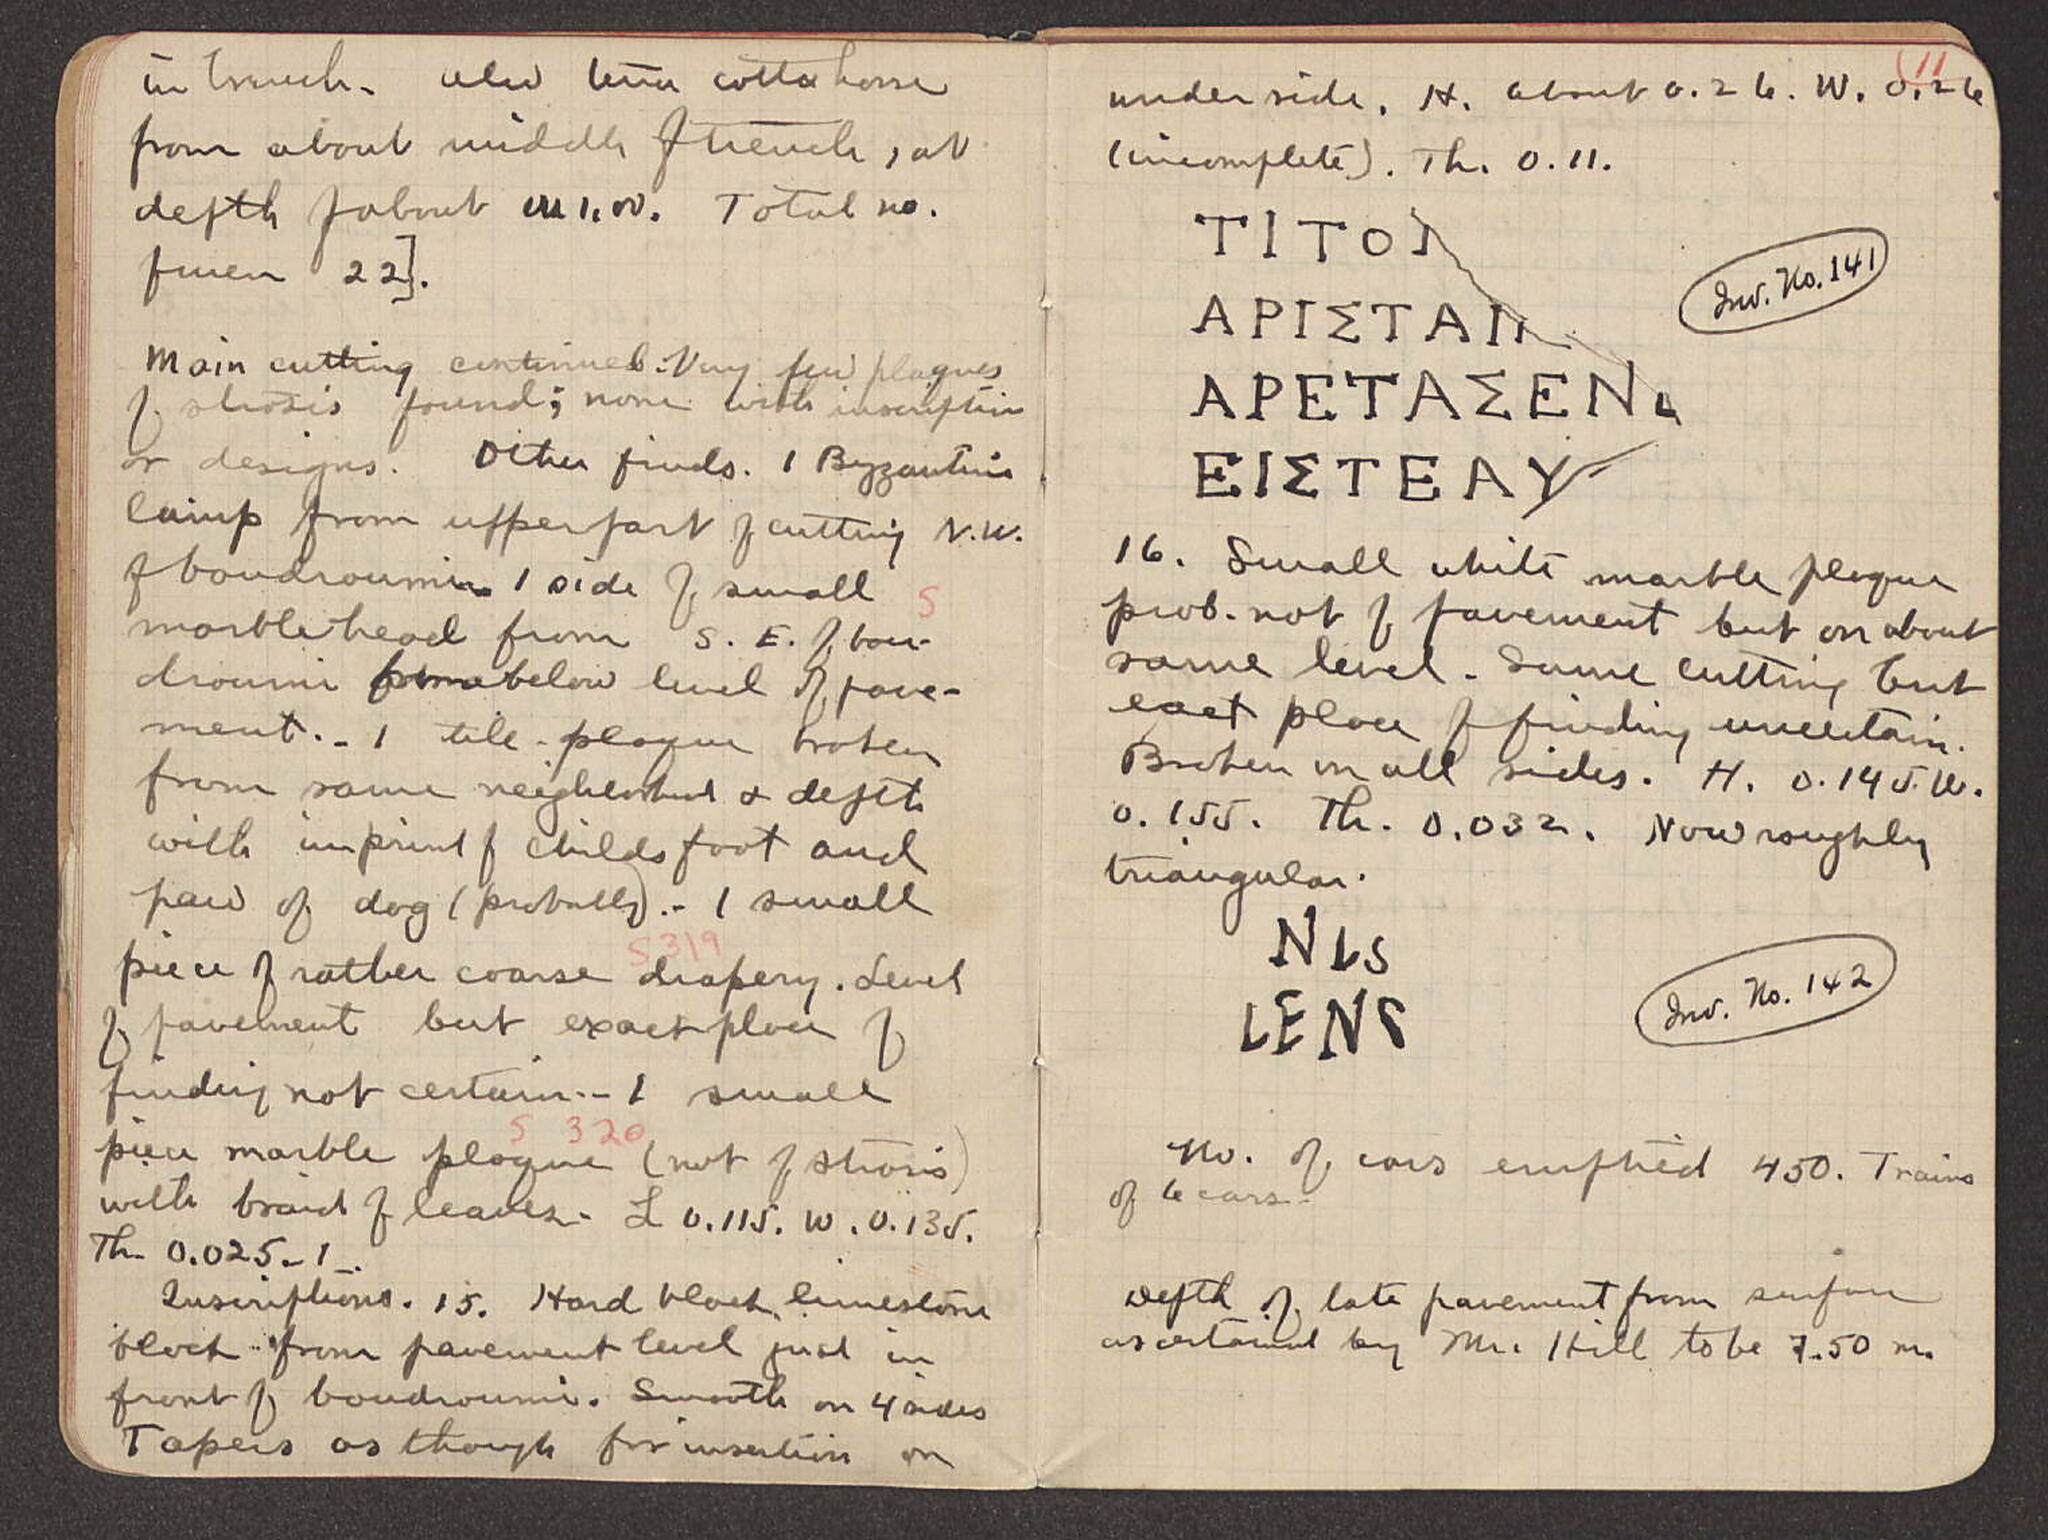 in trench. Also terra cotta horse
from about middle of trench, at
depth of about m 1.00. Total no.
from 22].
Main cutting continued. Very few plaques
of strosis found; none with inscription
or designs. Other finds. 1 Byzantine
lamp from upper part of cutting N.W.
of boudroumi. 1 side of small
S
marble head from S. E. of bou-
droumi from below level of pave-
ment. - 1 tile-plaque broken
from same neighborhood & depth
with imprint of childs foot and
paw of dog (probably). - 1 small
S 319
piece of rather coarse drapery. Level
of pavement but exact place of
finding not certain. - 1 small
S 320
piece marble plaque (not of strosis)
with braid of leaves. L 0.115. W. 0.135.
Th. 0.025. - 1 -.
Inscriptions. 15. Hard black limestone
block from pavement level just in
front of boudroumi. Smooth on 4 sides
Tapers as though for insertion on
11
under side. H. about 0.26. W. 0.26
(incomplete). Th. 0.11.
ΤΙΤΟΣ
ΑΡΙΣΤΑΙ
Inv. No. 141
ΑΡΕΤΑΣΕΝ
ΕΙΣΤΕΑΥ
16. Small white marble plaque
prob. not of pavement but on about
same level. Same cutting but
exact place of finding uncertain.
Broken on all sides. H. 0.145. W.
0.155. Th. 0.032. Now roughly
triangular.
NIS
LENS
Inv. No. 142
No. of cars emptied 450. Trains
of 6 cars.
Depth of late pavement from surface
ascertained by Mr. Hill to be 7.50 m.